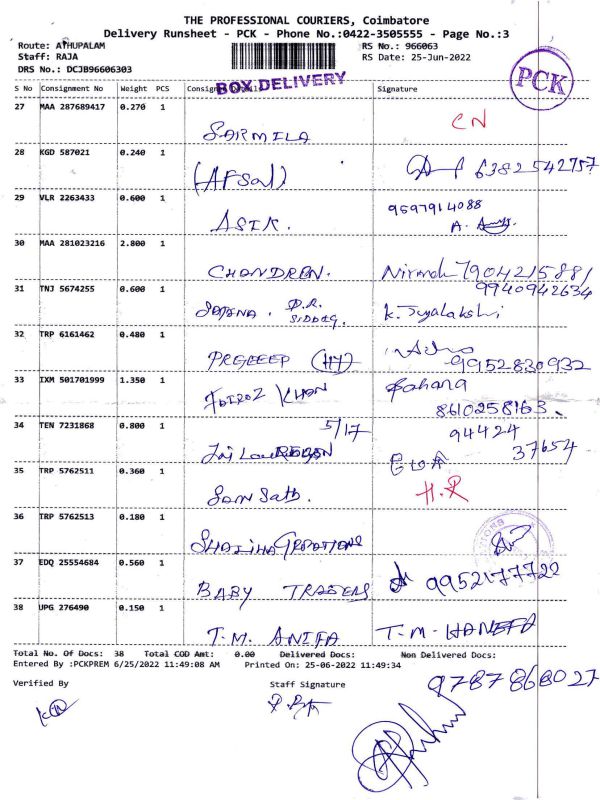 THE PROFESSIONAL COURIERS, Coimbatore
Delivery Runsheet - PCK - Phone No.:0422-3505555 - Page No.:3
Route: ATHUPALAM RS No.: 966063
Staff: RAJA RS Date: 25-Jun-2022
DRS No.: DCJB96606303
BOX DELIVERY
PCK
S No Consignment No Weight PCS Consignee Details Signature
27 MAA 287689417 0.270 1
SARMILA CN
28 KGD 587021 0.240 1
(AFSal) 6382542757
29 VLR 2263433 0.600 1 9597914088
ASIK. A.
30 MAA 281023216 2.800 1
CHANDRAN. Nirmala 7904215881
31 TNJ 5674255 0.600 1 9940942634
D.R. SIDDEQ.
32 TRP 6161462 0.480 1
PRGEEEP (HH) 9952830932
33 IXM 501701999 1.350 1
FAIROZ KHAN Fahana
8610258163.
34 TEN 7231868 0.800 1 5/17 94424
37654
35 TRP 5762511 0.360 1
H.R
36 TRP 5762513 0.180 1
37 EDQ 25554684 0.560 1
BABY TRADERS 9952177722
38 UPG 276490 0.150 1
T.M. ANIFA T.M-HANEFA
Total No. Of Docs: 38 Total COD Amt: 0.00 Delivered Docs: Non Delivered Docs:
Entered By :PCKPREM 6/25/2022 11:49:08 AM Printed On: 25-06-2022 11:49:34
Verified By Staff Signature 9787868027